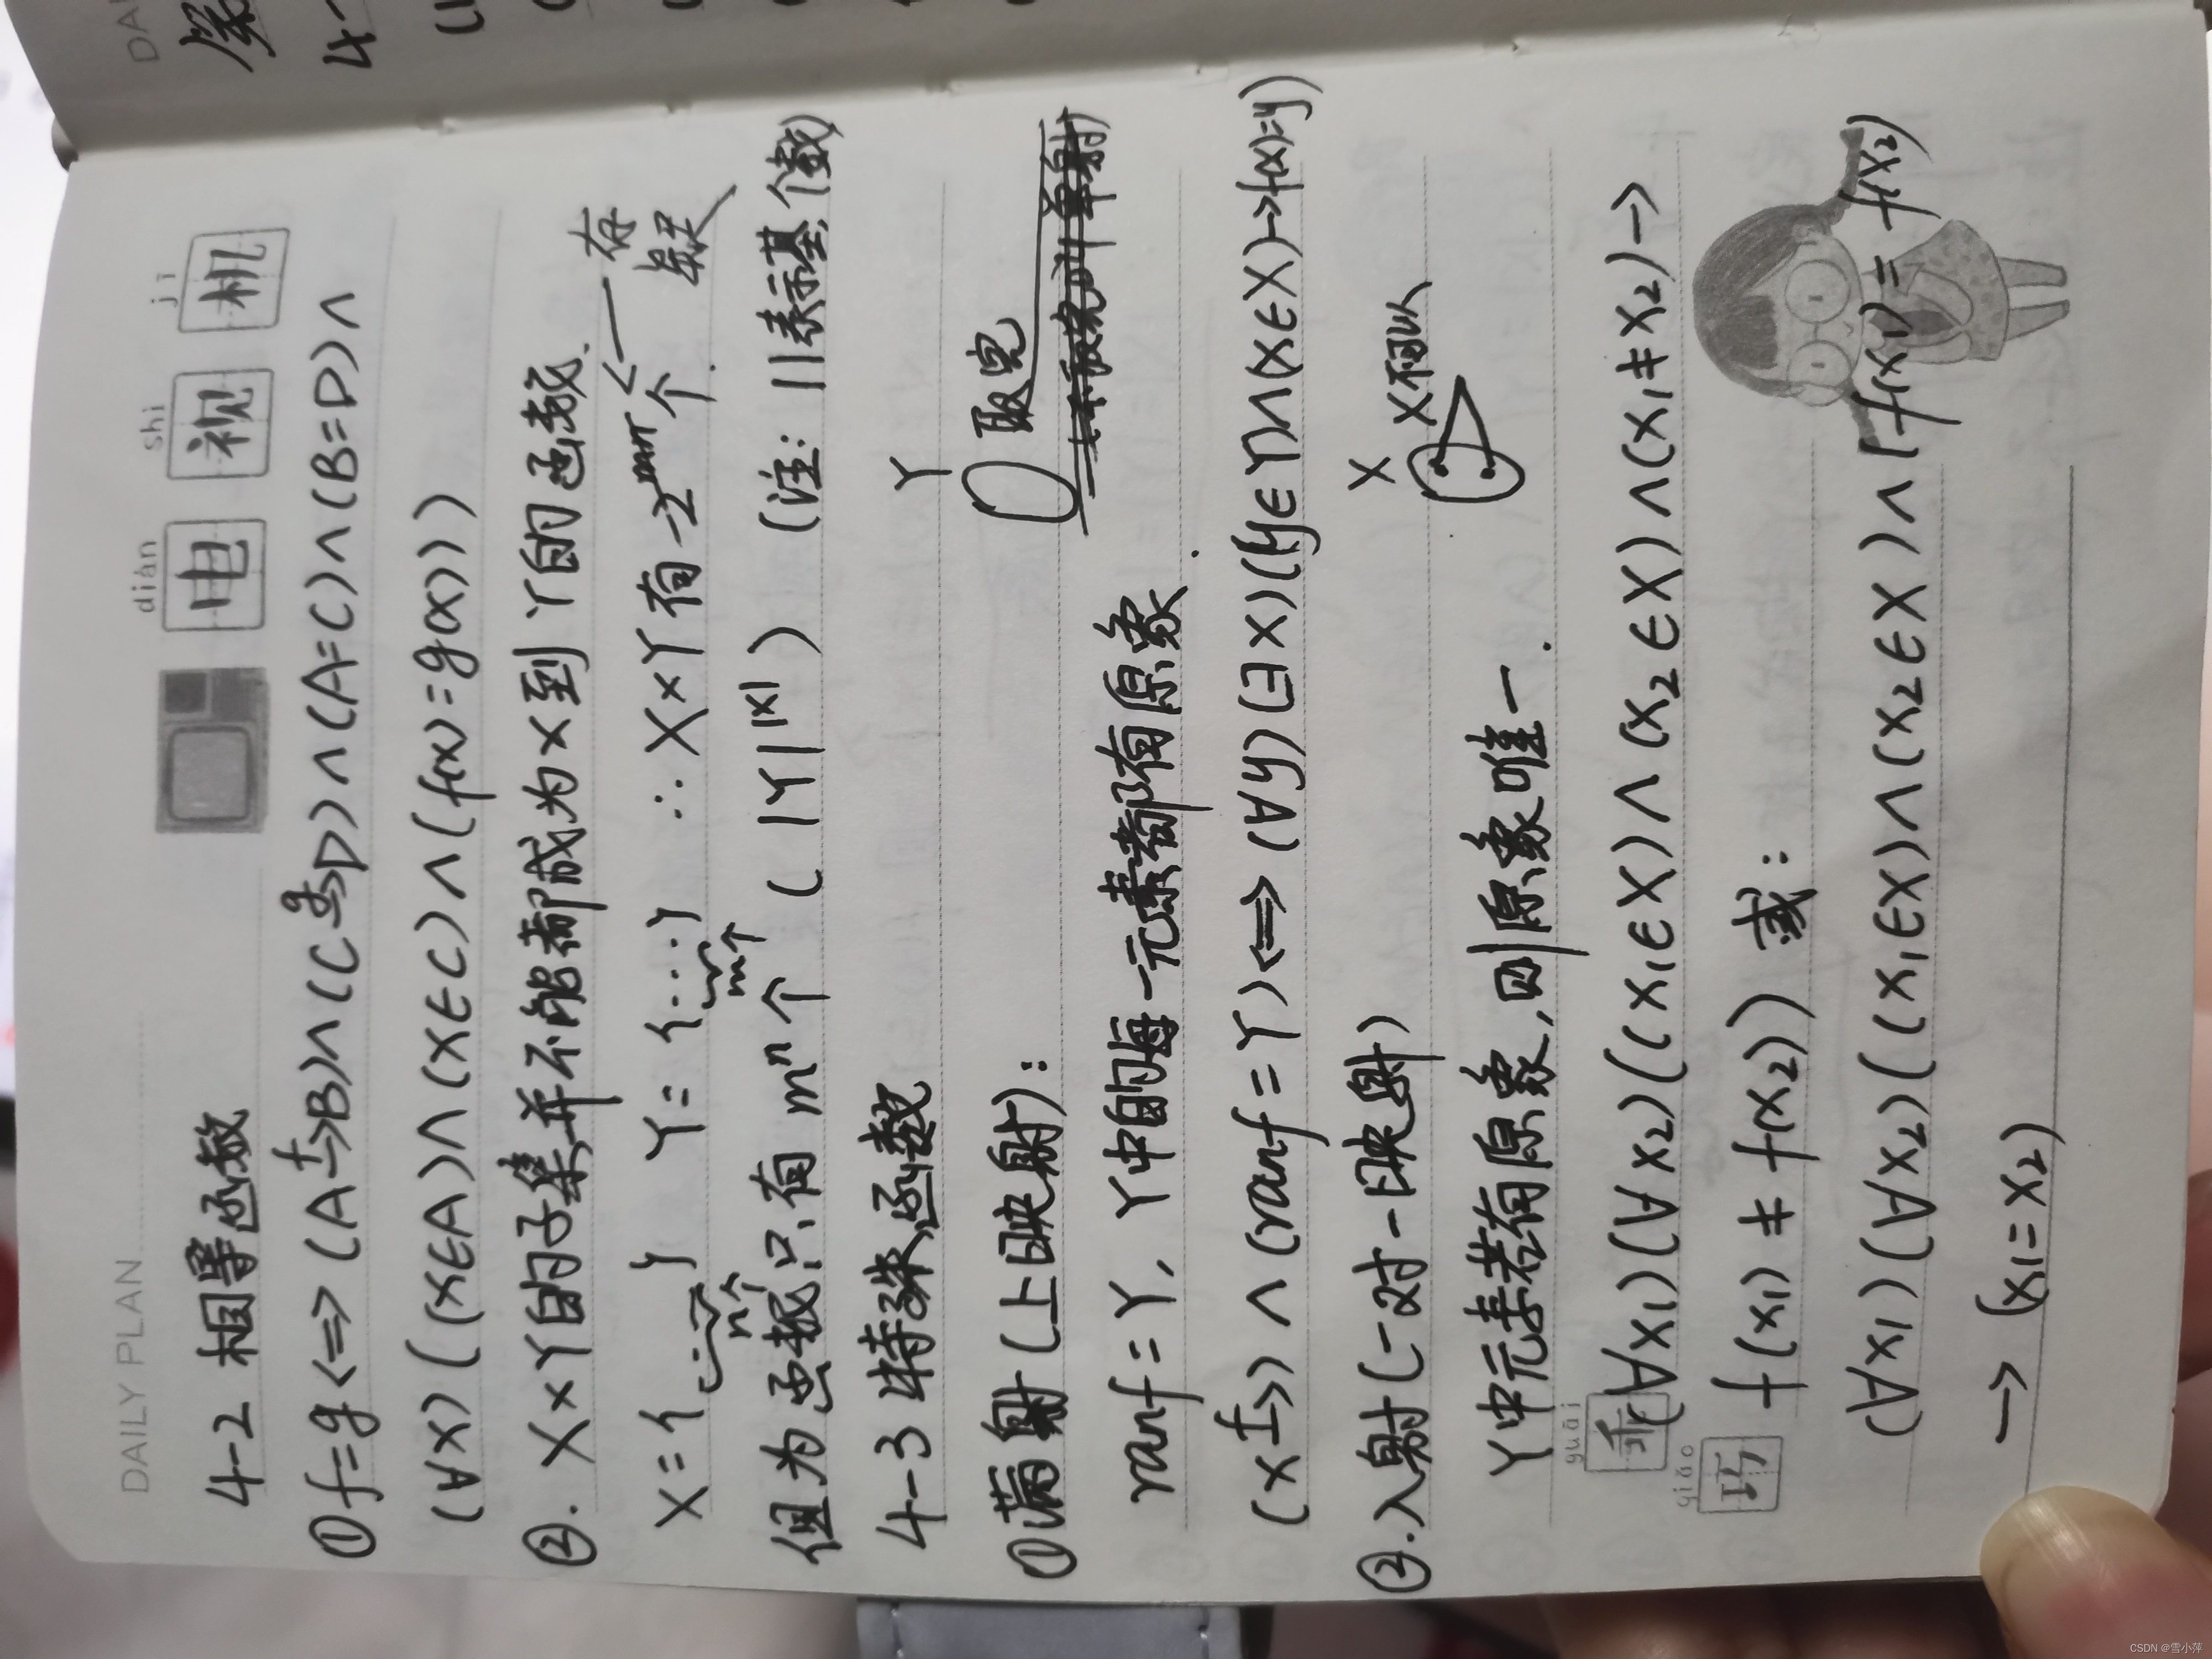 DAILY PLAN
diàn shì jī
电 视 机
4-2 相等函数
① f=g <=> (A f→ B)∧(C g→ D)∧(A=C)∧(B=D)∧
(∀x)((x∈A)∧(x∈C)∧(f(x)=g(x)))
②. X×Y的子集并不能都成为X到Y的函数.
X={...} Y={...} ∴ X×Y有 个. <— 存疑
n个 m个
但为函数只有 mⁿ个 (|Y|^|X|) (注: ||表示基数)
4-3 特殊函数
①满射(上映射): Y 取完
ranf=Y, Y中的每一元素都有原象.
(X f→ Y)∧(ranf=Y)<=>(∀y)(∃x)((y∈Y)∧(x∈X)→f(x)=y)
②.入射(一对一映射) X X不可以
Y中元素若有原象,则原象唯一.
guāi
乖
(∀x₁)(∀x₂)((x₁∈X)∧(x₂∈X)∧(x₁≠x₂)→
qiǎo
巧
f(x₁)≠f(x₂)) 或:
(∀x₁)(∀x₂)((x₁∈X)∧(x₂∈X)∧(f(x₁)=f(x₂)
→(x₁=x₂)
CSDN @雪小萍